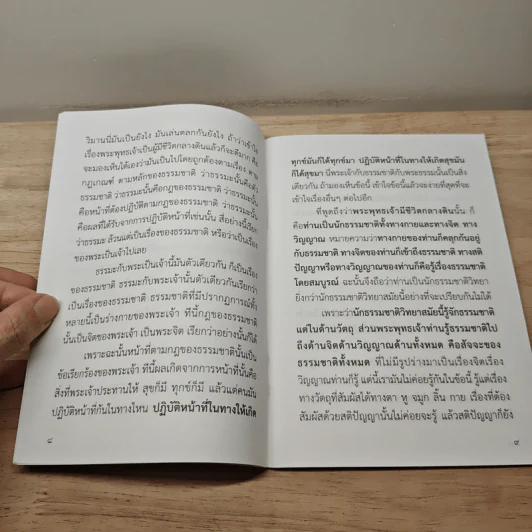 วิมานนี่มันเป็นยังไง มันเล่นตลกกันยังไง ถ้าว่าเข้าใจ
เรื่องพระพุทธเจ้าเป็นผู้มีชีวิตกลางดินแล้วก็จะดีมาก คือ
จะมองเห็นได้เองว่ามันเป็นไปโดยถูกต้องตามเรื่อง ตาม
กฎเกณฑ์ ตามหลักของธรรมชาติ ว่าธรรมะนั้นคือตัว
ธรรมชาติ ว่าธรรมะนั้นคือกฎของธรรมชาติ ว่าธรรมะนั้น
คือหน้าที่ต้องปฏิบัติตามกฎของธรรมชาติ ว่าธรรมะนั้น
คือผลที่ได้รับจากการปฏิบัติหน้าที่เช่นนั้น สี่อย่างนี้เรียก
ว่าธรรมะ ล้วนแต่เป็นเรื่องของธรรมชาติ หรือว่าเป็นเรื่อง
ของพระเป็นเจ้าไปเลย
ธรรมะกับพระเป็นเจ้านี้มันตัวเดียวกัน ก็เป็นเรื่อง
ของธรรมชาติ ธรรมะกับพระเจ้านั้นตัวเดียวกันเรียกว่า
เป็นเรื่องของธรรมชาติ ธรรมชาติที่มีปรากฏการณ์ทั้ง
หลายนี้เป็นร่างกายของพระเจ้า ที่นี้กฎของธรรมชาติ
นั้นเป็นจิตของพระเจ้า เป็นพระจิต เรียกว่าอย่างนั้นก็ได้
เพราะฉะนั้นหน้าที่ตามกฎของธรรมชาตินั้นเป็น
ข้อเรียกร้องของพระเจ้า ที่นี้ผลเกิดจากการหน้าที่นั้นคือ
สิ่งที่พระเจ้าประทานให้ สุขก็มี ทุกข์ก็มี แล้วแต่คนมัน
ปฏิบัติหน้าที่กันในทางไหน ปฏิบัติหน้าที่ในทางให้เกิด
๘
ทุกข์มันก็ได้ทุกข์มา ปฏิบัติหน้าที่ในทางให้เกิดสุขมัน
ก็ได้สุขมา นี่พระเจ้ากับธรรมชาติกับพระธรรมนั้นเป็นสิ่ง
เดียวกัน ถ้ามองเห็นข้อนี้ เข้าใจข้อนี้แล้วจะง่ายที่สุดที่จะ
เข้าใจเรื่องอื่นๆ ต่อไปอีก
ที่พูดถึงว่าพระพุทธเจ้ามีชีวิตกลางดินนั้น ก็
คือท่านเป็นนักธรรมชาติทั้งทางกายและทางจิต ทาง
วิญญาณ หมายความว่าทางกายของท่านก็คลุกกันอยู่
กับธรรมชาติ ทางจิตของท่านก็เข้าถึงธรรมชาติ ทางสติ
ปัญญาหรือทางวิญญาณของท่านก็คือรู้เรื่องธรรมชาติ
โดยสมบูรณ์ ฉะนั้นจึงถือว่าท่านเป็นนักธรรมชาติวิทยา
ยิ่งกว่านักธรรมชาติวิทยาสมัยนี้อย่างที่จะเปรียบกันไม่ได้
เพราะว่านักธรรมชาติวิทยาสมัยนี้รู้จักธรรมชาติ
แต่ในด้านวัตถุ ส่วนพระพุทธเจ้าท่านรู้ธรรมชาติไป
ถึงด้านจิตด้านวิญญาณด้านทั้งหมด คือสัจจะของ
ธรรมชาติทั้งหมด ที่ไม่มีรูปร่างมาเป็นเรื่องจิตเรื่อง
วิญญาณท่านก็รู้ แต่นี้เรามันไม่ค่อยรู้กันในข้อนี้ รู้แต่เรื่อง
ทางวัตถุที่สัมผัสได้ทางตา หู จมูก ลิ้น กาย เรื่องที่ต้อง
สัมผัสด้วยสติปัญญานั้นไม่ค่อยจะรู้ แล้วสติปัญญาก็ยัง
๙